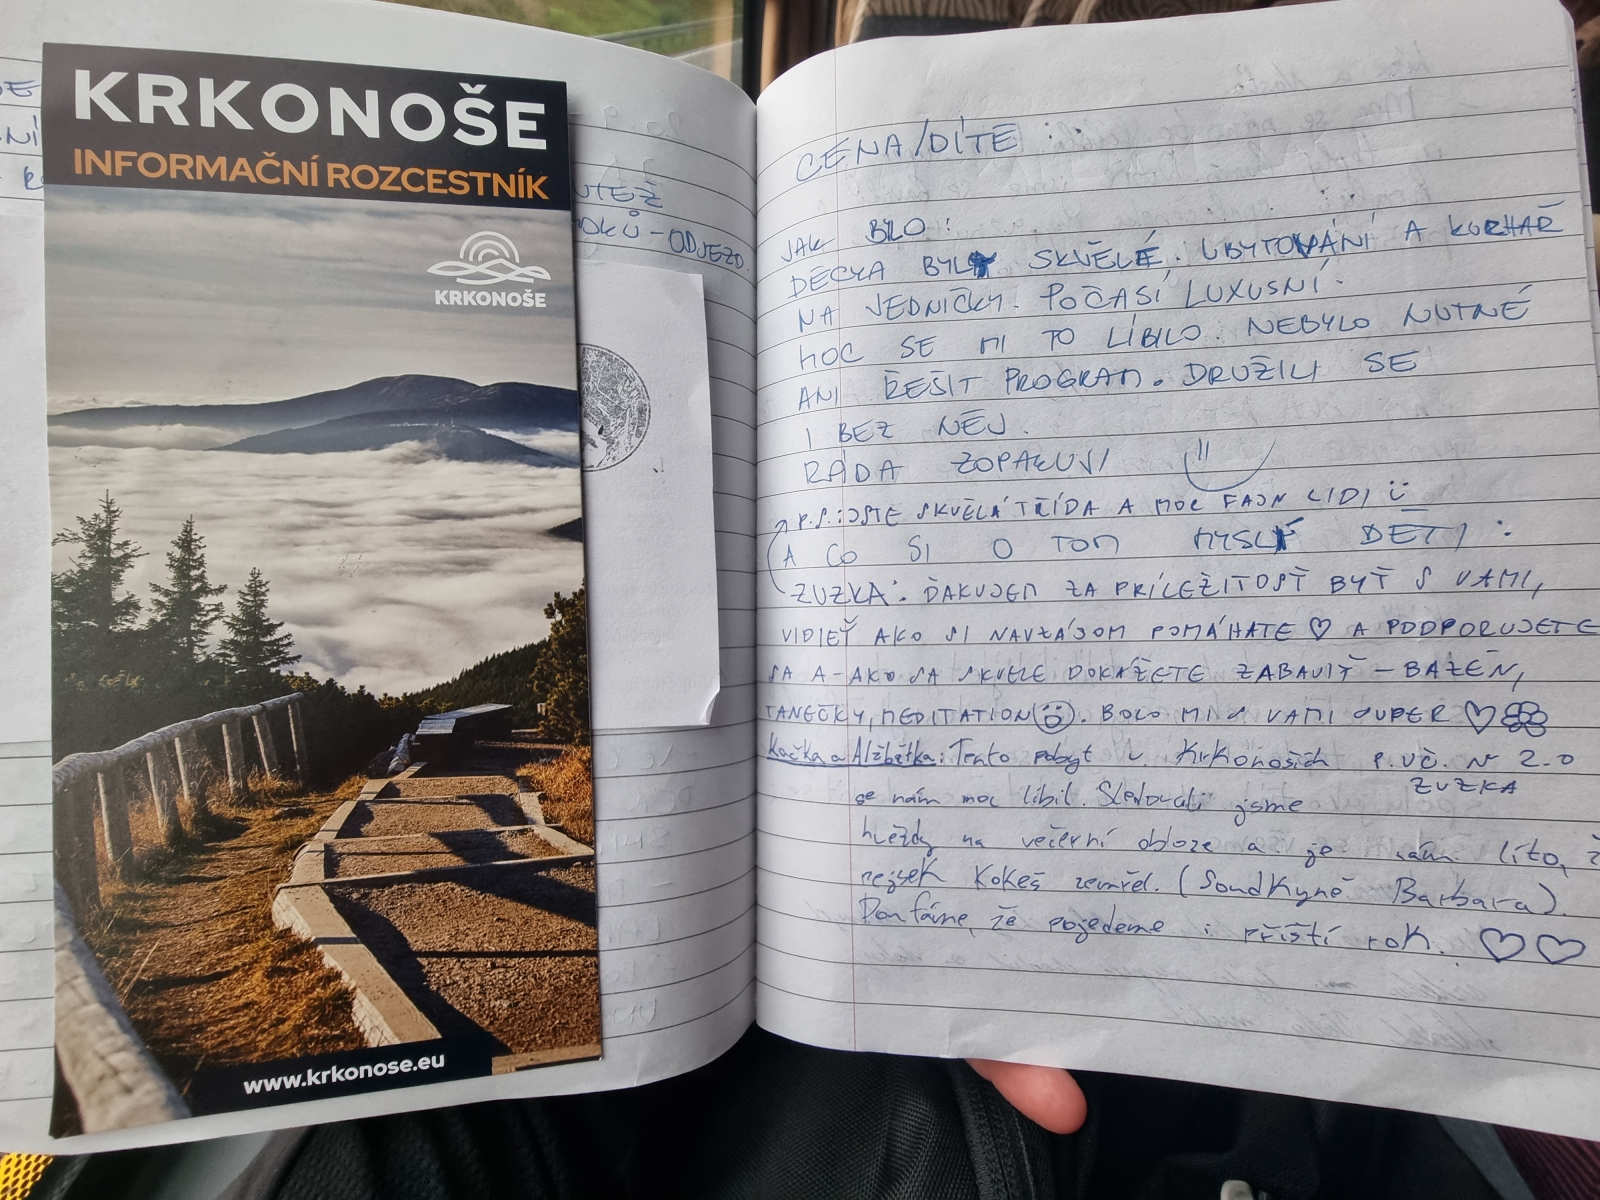 KRKONOŠE
INFORMAČNÍ ROZCESTNÍK
KRKONOŠE
www.krkonose.eu
NÍ
UTEŽ
ROKŮ - ODJEZD.
CENA/DÍTĚ :
JAK BYLO :
DĚCKA BYLY SKVĚLÉ. UBYTOVÁNÍ A KUCHAŘ
NA JEDNIČKY. POČASÍ LUXUSNÍ.
MOC SE MI TO LÍBILO. NEBYLO NUTNÉ
ANI ŘEŠIT PROGRAM. DRUŽILI SE
I BEZ NĚJ.
RÁDA ZOPAKUJI
P.S.: JSTE SKVĚLÁ TŘÍDA A MOC FAJN LIDI
A CO SI O TOM MYSLÍ DĚTI :
ZUZKA: ĎAKUJEM ZA PRÍLEŽITOSŤ BYŤ S VAMI,
VIDIEŤ AKO SI NAVZÁJOM POMÁHATE ♡ A PODPORUJETE
SA A-AKO SA SKVELE DOKÁŽETE ZABAVIŤ - BAZÉN,
TANEČKY, MEDITATION. BOLO MI S VAMI SUPER ♡
Kačka a Alžbětka: Tento pobyt v Krkonoších p. uč. N 2.0
ZUZKA
se nám moc líbil. Sledovali jsme
hvězdy na večerní obloze a je nám líto, ž
rejsek Kokeš zemřel. (Soudkyně Barbara).
Doufáme, že pojedeme i příští rok. ♡♡